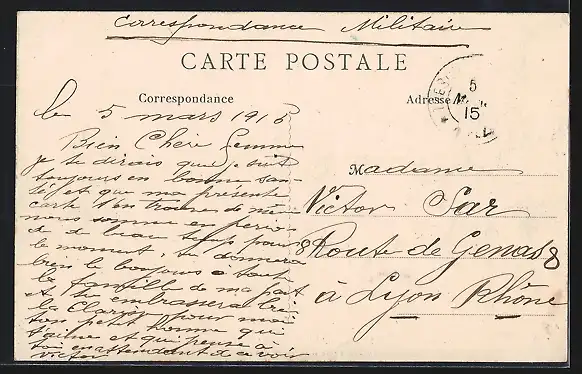 Correspondance Militaire
CARTE POSTALE
Correspondance
Adresse
5
15
le 5 mars 1915
Bien Chère femme
je te dirais que je suis
toujours en bonne san-
té et que ma présente
carte t'en trouve de même
nous somme en perio-
de de beau temps pour
le moment, tu donnera
bien le bonjours à toute
la famille de ma part
et tu embrassera bien
la pour moi
ton petit homme qui
t'aime et qui pense à
toi en attendant de te voir
Victor
Madame
Victor Sar
8 Route de Genas 8
à Lyon Rhône